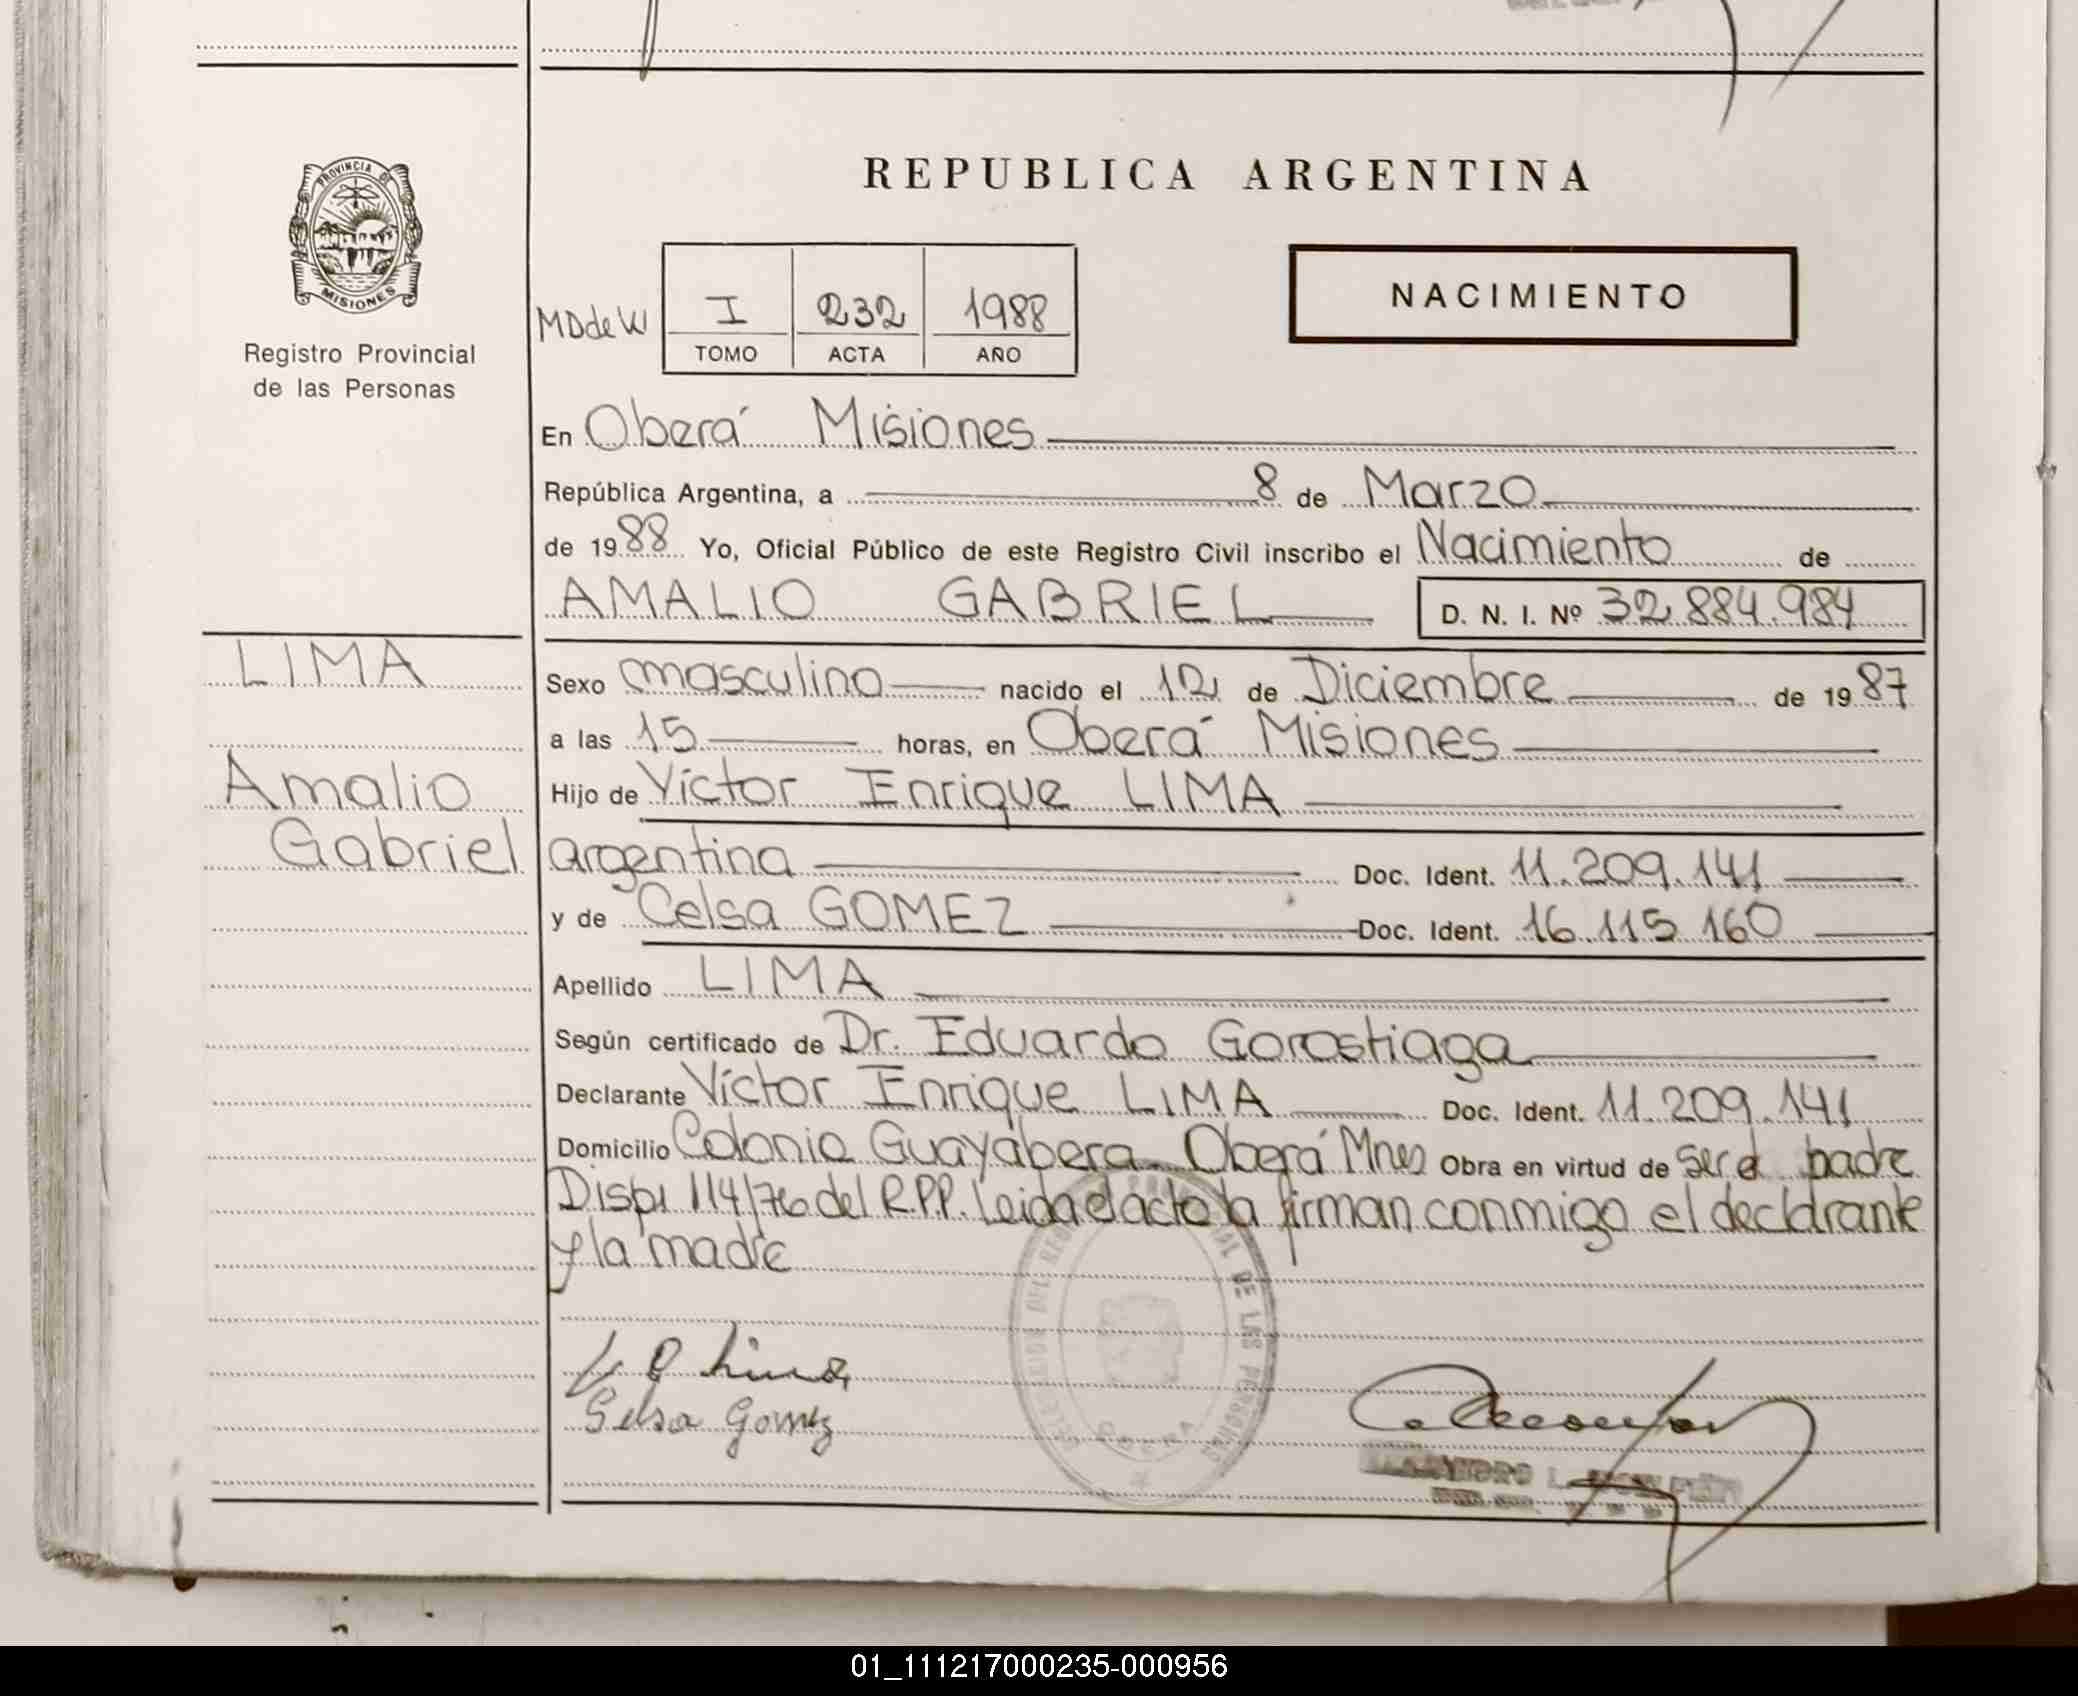 REPUBLICA ARGENTINA
PROVINCIA DE
MISIONES
Registro Provincial
de las Personas
NACIMIENTO
MDdeW
I 232 1988
TOMO ACTA AÑO
En Oberá Misiones
República Argentina, a 8 de Marzo
de 1988 Yo, Oficial Público de este Registro Civil inscribo el Nacimiento de
AMALIO GABRIEL D. N. I. Nº 32.884.984
LIMA
Amalio
Gabriel
Sexo masculino nacido el 12 de Diciembre de 1987
a las 15 horas, en Oberá Misiones
Hijo de Víctor Enrique LIMA
argentina Doc. Ident. 11.209.141
y de Celsa GOMEZ Doc. Ident. 16.115.160
Apellido LIMA
Según certificado de Dr. Eduardo Gorostiaga
Declarante Víctor Enrique LIMA Doc. Ident. 11.209.141
Domicilio Colonia Guayabera Oberá Mnes Obra en virtud de ser el padre
Disp. 114/76 del R.P.P. Leida el acta la firman conmigo el declarante
y la madre
V E Lima
Selsa Gomez
DEL REGISTRO PROVINCIAL DE LAS PERSONAS
OBERA
01_111217000235-000956